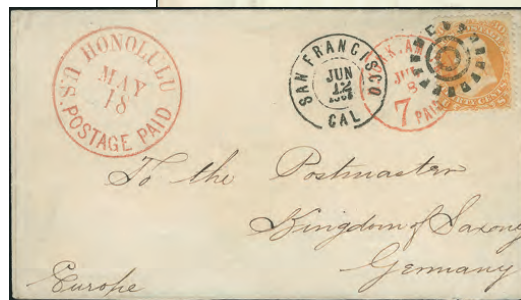 HONOLULU
U.S. POSTAGE PAID
MAY
18
SAN FRANCISCO
JUN
12
CAL
7
PAID
To the Postmaster
Kingdom of Saxony
Germany
Europe